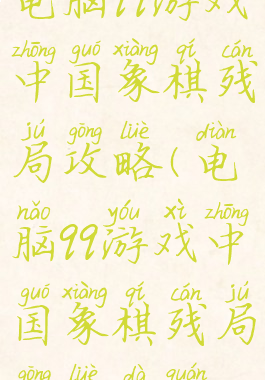 电脑99游戏
zhōng guó xiàng qí cán
中国象棋残
jú gōng lüè diàn
局攻略(电
nǎo yóu xì zhōng
脑99游戏中
guó xiàng qí cán jú
国象棋残局
gōng lüè dà quán